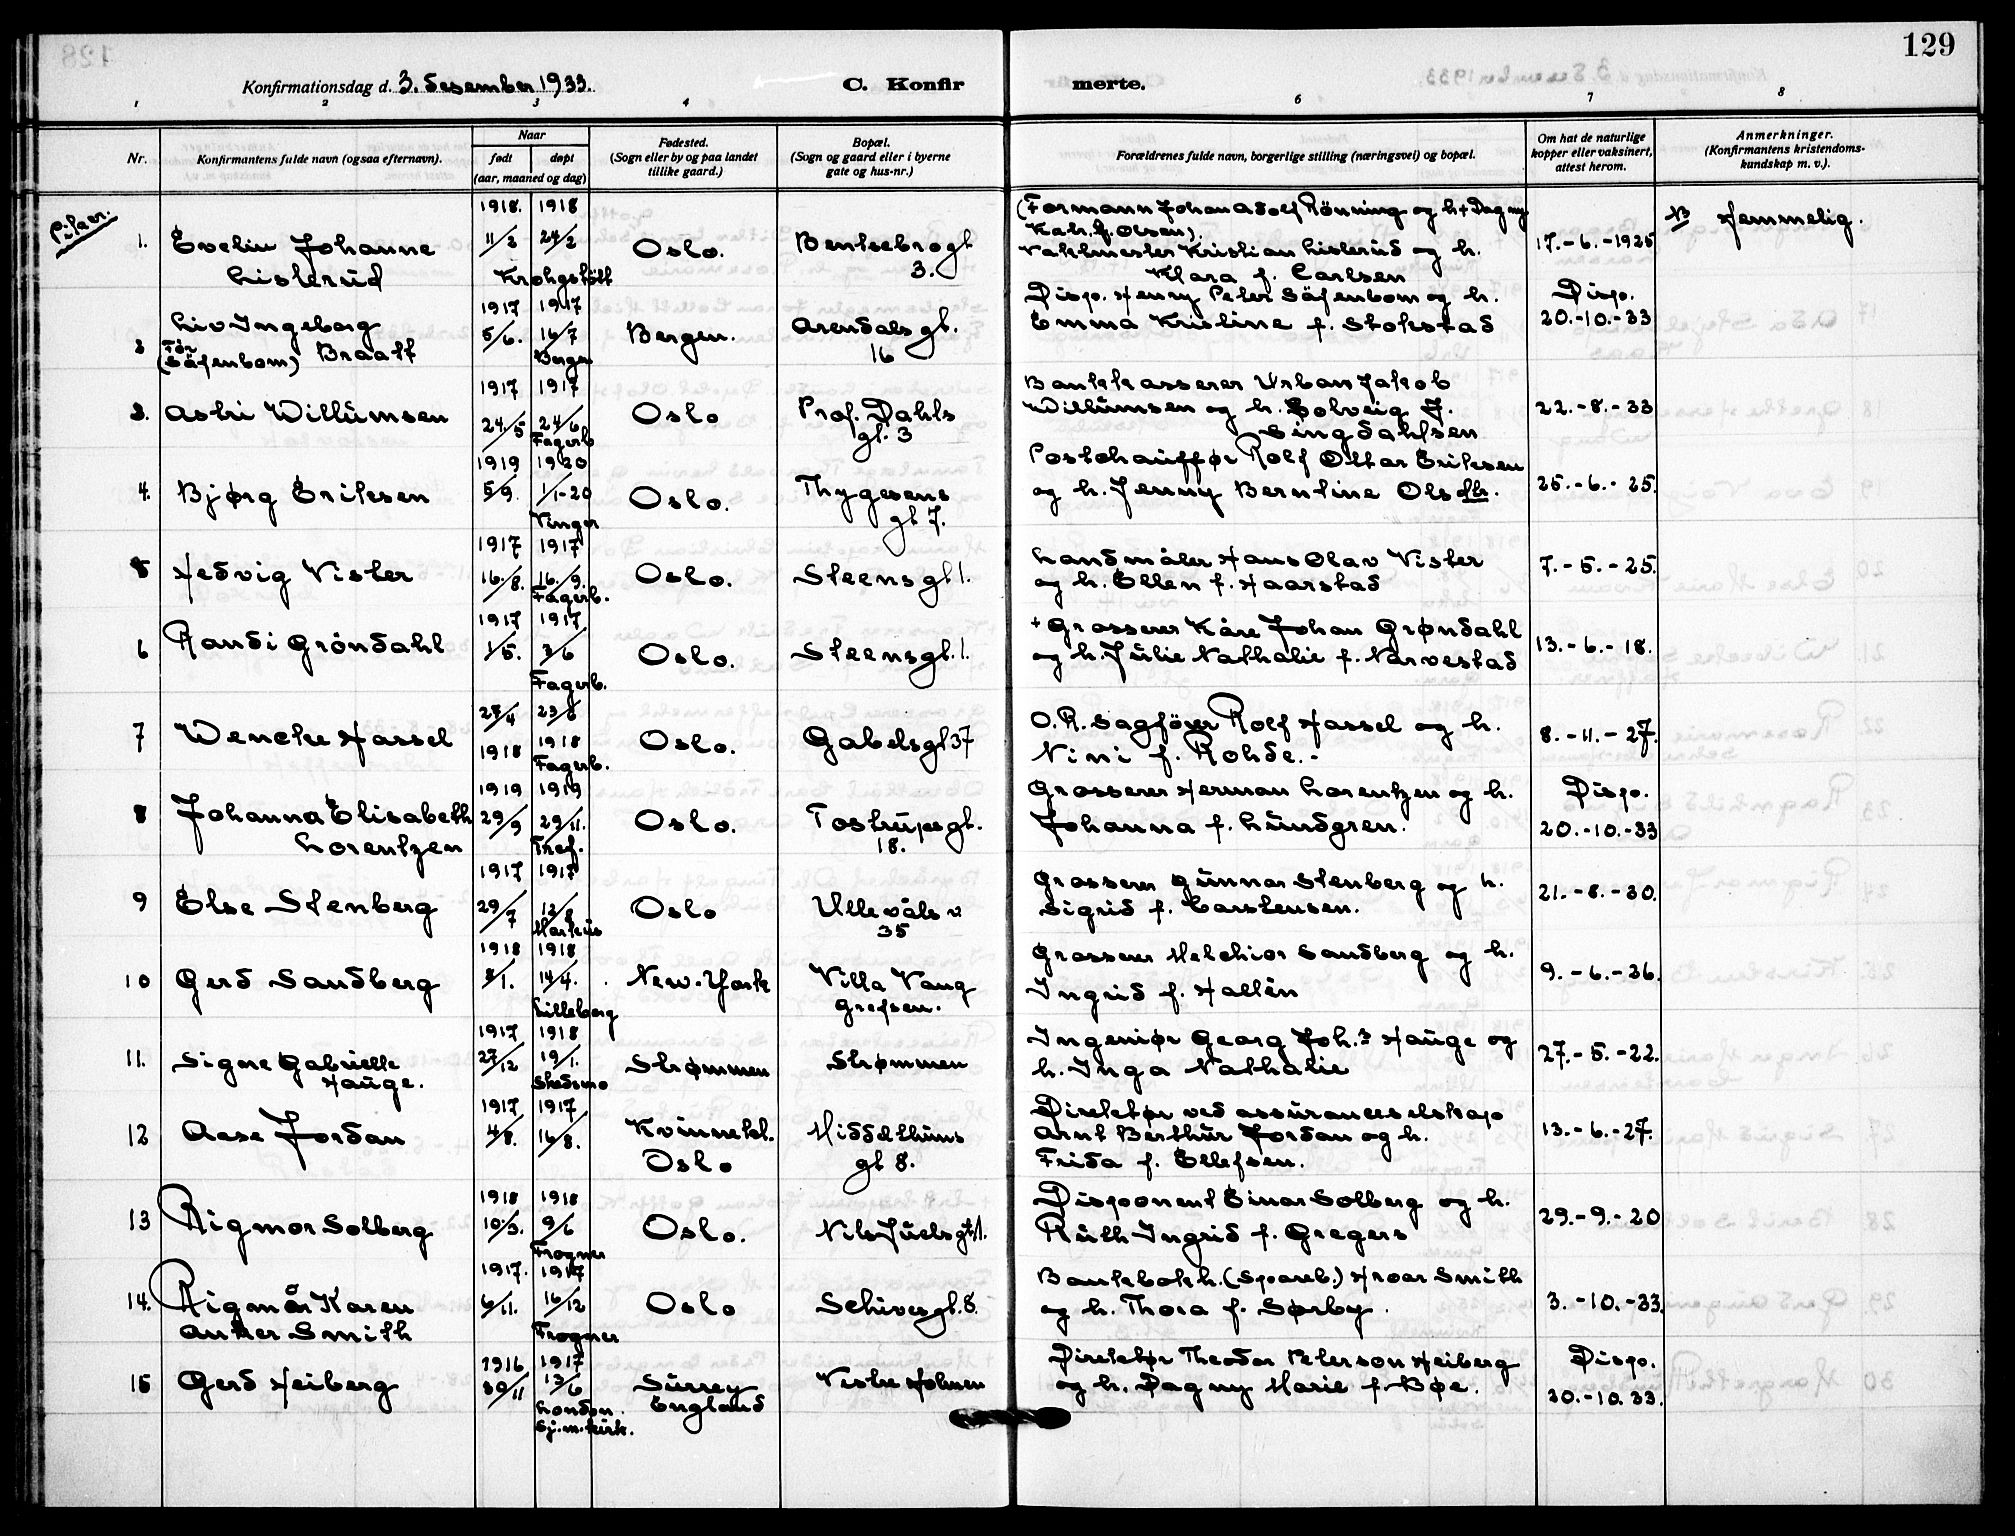 129
Konfirmationsdag d. 3. desember 1933.
C. Konfirmerte.
1 2 3 4 6 7 8
Nr.
Konfirmantens fulde navn (ogsaa efternavn).
Naar
født
døpt
(aar, maaned og dag)
Fødested.
(Sogn eller by og paa landet
tillike gaard.)
Bopæl.
(Sogn og gaard eller i byerne
gate og hus-nr.)
Forældrenes fulde navn, borgerlige stilling (næringsvei) og bopæl.
Om hat de naturlige
kopper eller vaksinert,
attest herom.
Anmerkninger.
(Konfirmantens kristendoms-
kundskap m. v.).
Piker.
1. Evelin Johanne
Listerud
1918. 1918
11/2 24/2
Krohgstøtt
Oslo.
Bentsebrogt
3.
(Formann Johan Adolf Rønning og h+ Dagny
Katr. f. Olsen).
Vaktmester Kristian Listerud og h.
Klara f. Carlsen
17.-6.-1925
NB Hemmelig.
2 Liv Ingeborg
(Før Säfenbom) Braatt
1917 1917
5/6. 16/7
Bergen
Bergen.
Arendalsgt.
16
Disp. Henry Peter Säfenbom og h.
Emma Kristine f. Stokstad
Disp.
20.-10.-33
3. Astri Willumsen
1917 1917
24/5 24/6
Fagerb
Oslo
Prof. Dahls
gt. 3
Bankkasserer Urban Jakob
Willumsen og h. Solveig f.
Singdahlsen
22.-8.-33
4. Bjørg Eriksen
1919 1920
5/9. 1/1-20
Vinger
Oslo.
Thygesens
gt 7.
Postchauffør Rolf Ottar Eriksen
og h. Jenny Berntine Olsdtr.
25.-6.-25.
5 Hedvig Vister
1917 1917
16./8. 16./9.
Fagerb.
Oslo.
Steensgt 1.
Landmåler Hans Olav Vister
og h. Ellen f. Haarstad
7.-5.-25.
6 Randi Gröndahl
1917 1917
1/5. 3/6
Fagerb.
Oslo.
Steensgt. 1.
+ Grosserer Kåre Johan Grøndahl
og h. Julie Nathalie f. Narvestad
13.-6.-18.
7 Wencke Hassel
27/4 23/6
1918 1918
Fagerb.
Oslo.
Gabelsgt 37
O.R. Sagfören Rolf Hassel og h.
Nini f. Rohde.-
8.-11.-27.
8 Johanna Elisabeth
Lorentzen
1919 1919
29/9 29/11.
Tref.
Oslo.
Tostrupsgt.
18.
Grosserer Herman Lorentzen og h.
Johanna f. Lundgren.
Disp.
20.-10.-33
9 Else Stenberg
1917 1917
29/7 12/8
Markus
Oslo
Ullevåls v
35
Grosserer Gunnar Stenberg og h.
Sigrid f. Carstensen.
21.-8.-30.
10 Gerd Sandberg
1918 1918
8/1. 14/4.
Lilleborg
New-York
Villa Vang
Grefsen.
Grosserer Melchior Sandberg og h.
Ingrid f. Hallén
9.-6.-26.
11. Signe Gabrielle
Hauge.
1917 1918
27/12 19/1.
Skedsmo
Strømmen
Strømmen
Ingeniør Georg Joh.s Hauge og
h. Inga Nathalie
27.-5.-22.
12 Aase Jordan
1917 1917
4/8. 16/8.
Kvinnekl.
Oslo
Middelthuns
gt 8.
Direktør ved assuranceselskap
Arnt Berthur Jordan og h.
Frida f. Ellefsen.
13.-6.-27.
13 Rigmor Solberg
1918 1918
10/3. 9/6
Frogner
Oslo.
Nils Juelsgt 1.
Disponent Einar Solberg og h.
Ruth Ingrid f. Gregers
29.-9.-20
14. Rigmor Karen
Anker Smith
1917. 1917
6/11. 16/12
Frogner
Oslo
Schivesgt. 8.
Bankbokh. (Spareb.) Hroar Smith
og h. Thora f. Sørby.
3.-10.-33.
15 Gerd Heiberg
1916 1917
30/11 13/6
London.
Sj.m.kirk.
Surrey
England
Vestre Holmen
Direktør Theodor Peterson Heiberg
og h. Dagny Marie f. Bøe.
Disp.
20.-10.33.